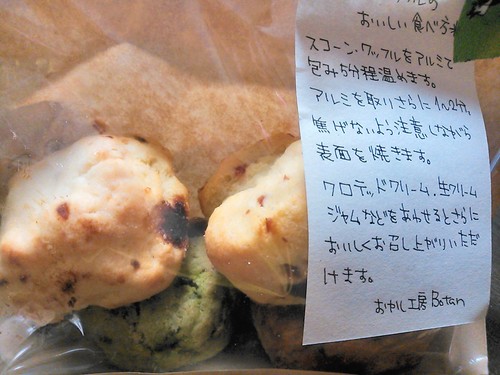 おいしい食べ方
スコーン・ワッフルをアルミで
包み5分程温めます。
アルミを取りさらに1〜2分、
焦げないよう注意しながら
表面を焼きます。
クロテッドクリーム、生クリーム
ジャムなどをあわせるとさらに
おいしくお召し上がりいただ
けます。
おやし工房Botan